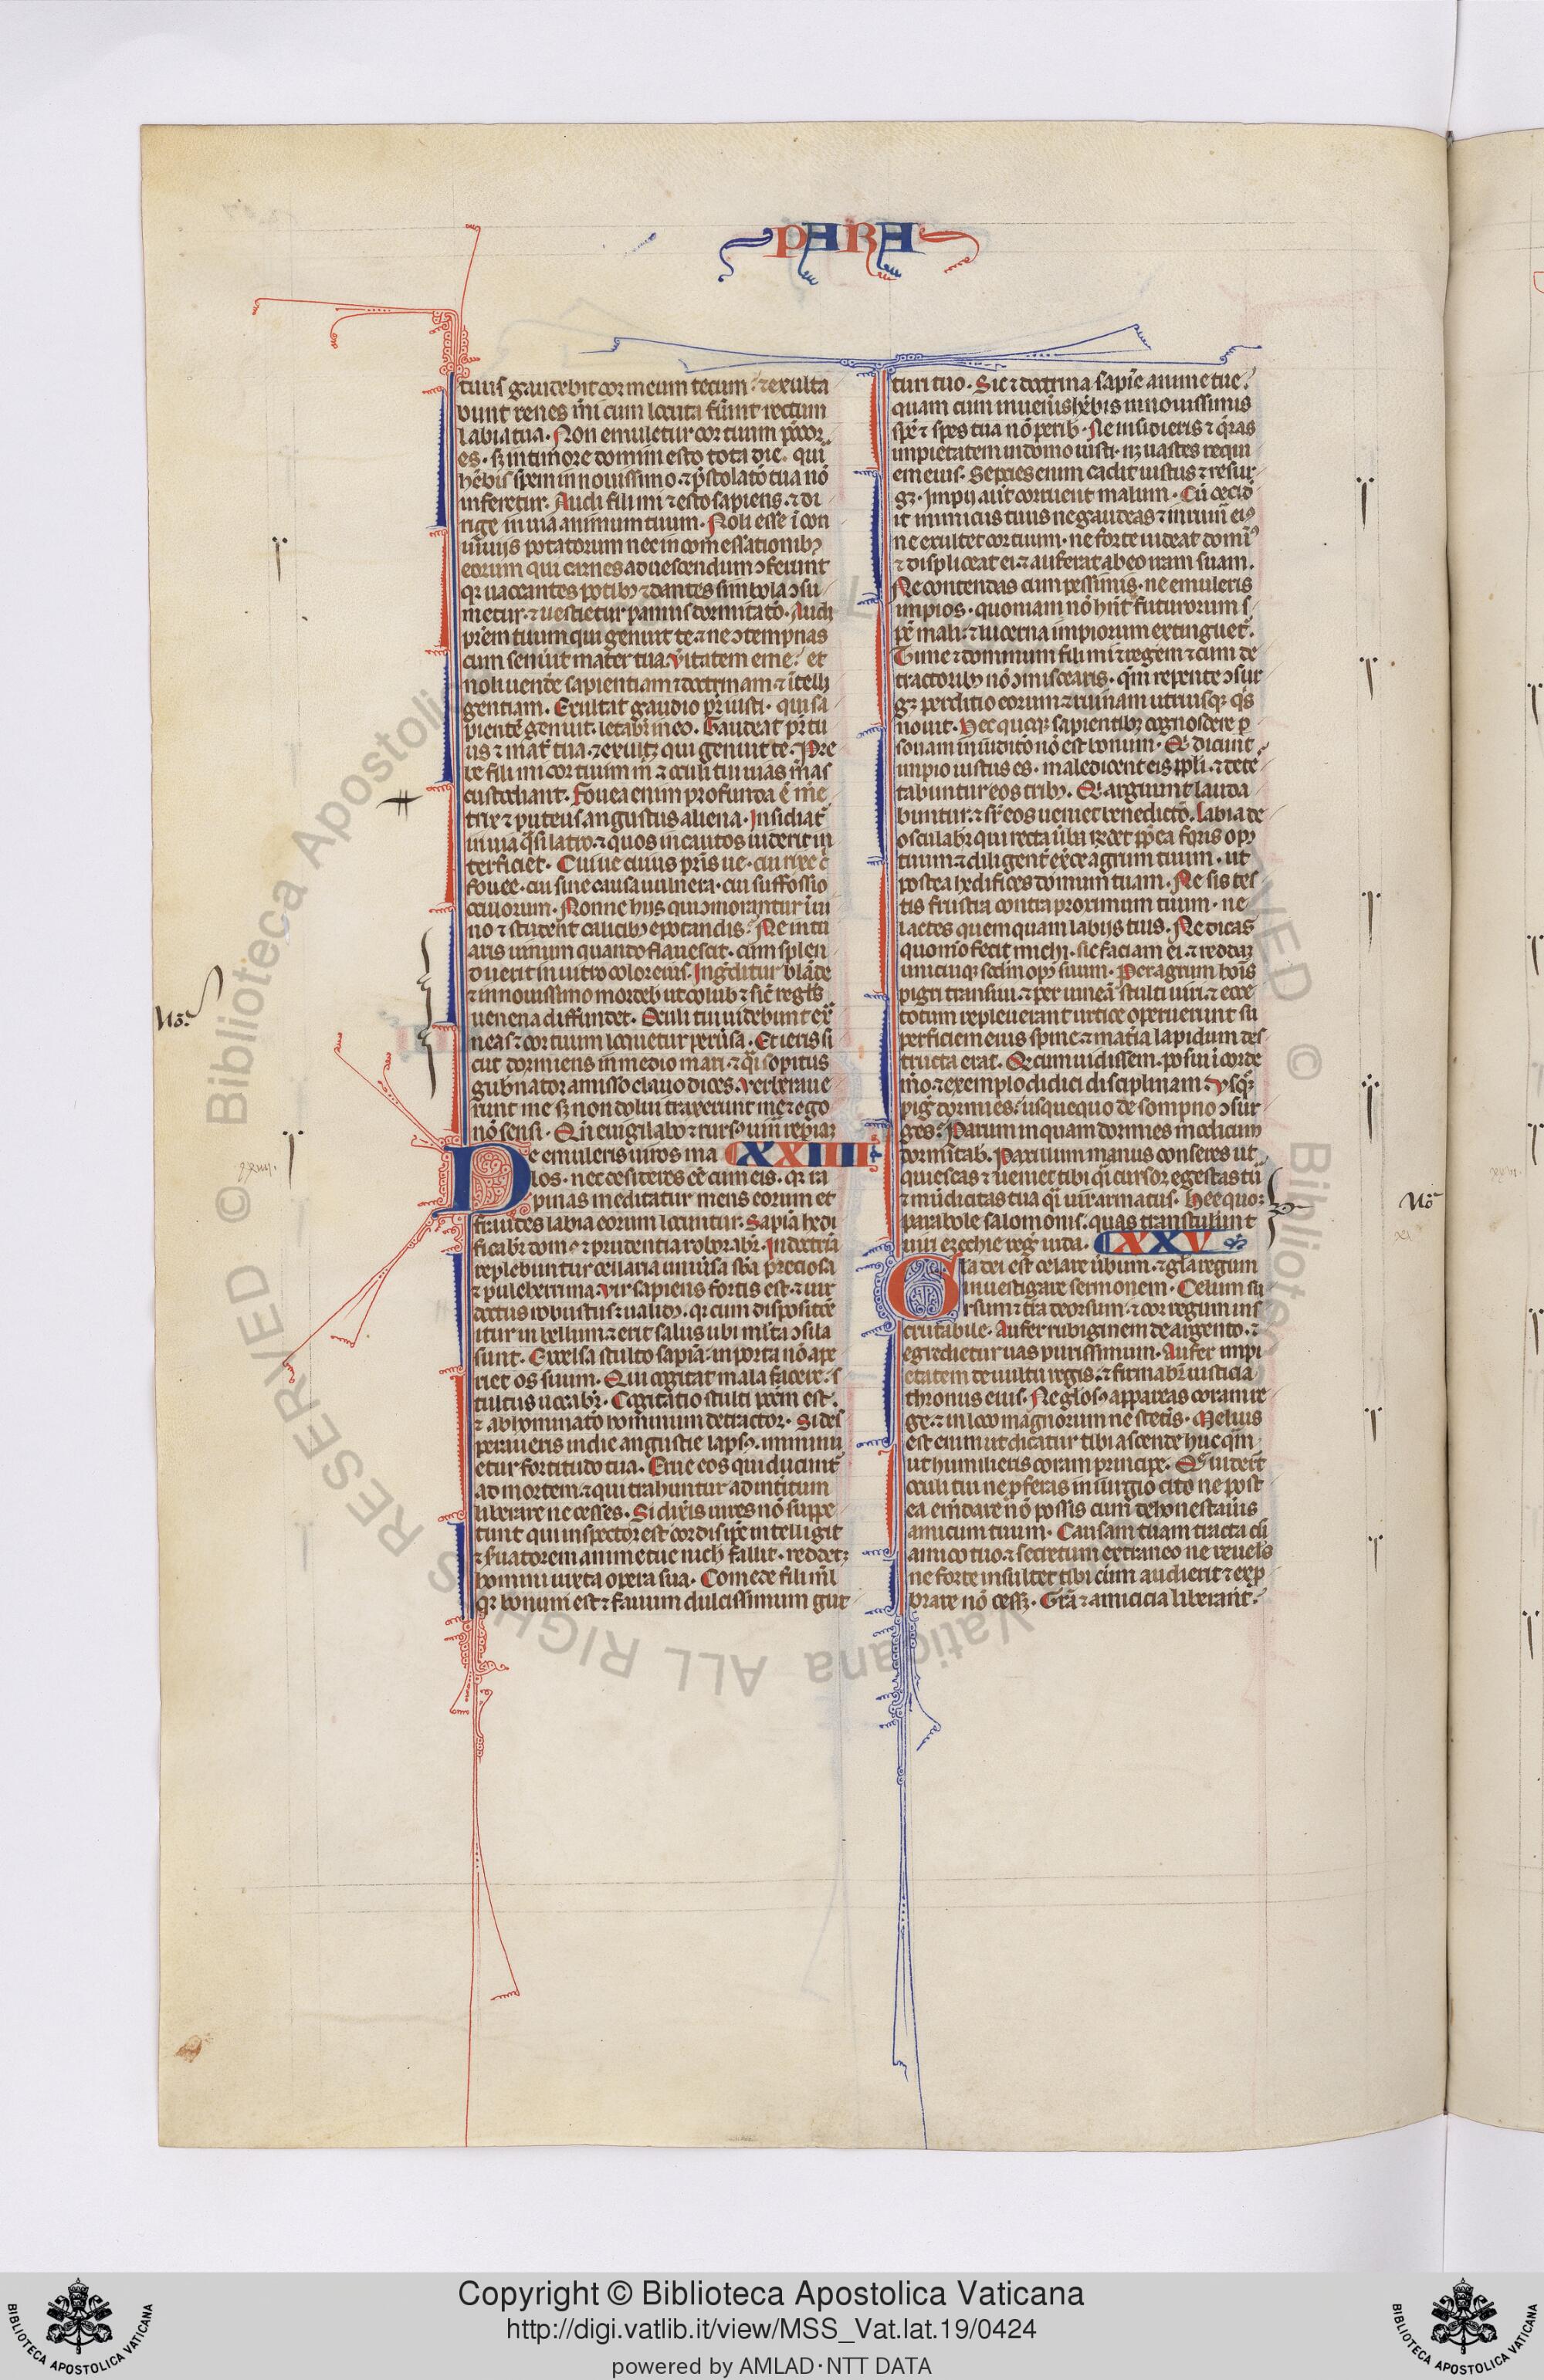 PARA
tuus gaudebit cor meum tecum ⁊ exulta
bunt renes mi cum locuta fuint rectum
labia tua. Non emuletur cor tuum pctor
es. sꝫ in timore domini esto tota die. qui
hebis spem in nouissimo ⁊ pstolato tua no
inferetur. Audi fili mi ⁊ esto sapiens. ⁊ di
rige in uia animum tuum. Noli esse i con
uiuijs potatorum nec in comessationibꝫ
eorum qui carnes ad uescendum ɔferunt
qꝛ uacantes potibꝫ ⁊ dantes simbola ɔsu
metur. ⁊ uestietur pannis dormitato. Audi
prem tuum qui genuit te. ⁊ ne ɔtempnas
cum senuit mater tua. Vitatem eme. et
noli uende sapientiam ⁊ doctrinam ⁊ itelli
gentiam. Exultat gaudio pr iusti. qui sa
piente genuit. letabr in eo. Gaudeat pr tu
us ⁊ mat tua. ⁊ exultꝫ qui genuit te. Pre
be fili mi cor tuum m ⁊ oculi tui uias mas
custodiant. Fouea enim profunda e me
trix ⁊ puteus angustus aliena. Insidiat
in uia qsi latro. ⁊ quos incautos uiderit in
terficiet. Cui ue cuius pris ue. cui rixe c
fouee. cui sine causa uulnera. cui suffossio
oculorum. Nonne hijs qui ɔmorantur i ui
no ⁊ student calicibꝫ epotandis. Ne intu
aris uinum quando flauescit. cum splen
duerit in uitro color eius. Ingditur blade
⁊ in nouissimo mordeb ut colub ⁊ sic regls
uenena diffundet. Oculi tui uidebunt ex
neas ⁊ cor tuum loquetur puersa. Et eris si
cut dormiens in medio mari. ⁊ qi sopitus
gubnator amisso clauo dices. Verberaue
runt me sꝫ non dolui traxerunt me ⁊ ego
no sensi. Qn euigilabo ⁊ rurs uin repiaꝫ
Ne emuleris uiros ma XXIIII
los. nec desideres ee cum eis. qꝛ ra
pinas meditatur mens eorum et
fraudes labia eorum locuntur. Sapia hedi
ficabr dom ⁊ prudentia roborabr. In doctria
replebuntur cellaria uniusa sba preciosa
⁊ pulcherrima. Vir sapiens fortis est. ⁊ uir
doctus robustus ⁊ ualid. qꝛ cum dispositoe
itur in bellum ⁊ erit salus ubi mlta ɔsila
sunt. Excelsa stulto sapia. in porta no ape
riet os suum. Qui cogitat mala facere. s
tultus uocabr. Cogitatio stulti pctm est.
⁊ abhominato hominum detractor. Si des
peraueris in die angustie laps. imminu
etur fortitudo tua. Erue eos qui ducunt
ad mortem. ⁊ qui trahuntur ad intitum
liberare ne cesses. Si dixis uires no suppe
tunt qui inspector est cordis ipe intelligit
⁊ suatorem anime tue nich fallit. reddetꝫ
homini iuxta opera sua. Comede fili mi l
qꝛ bonum est ⁊ fauum dulcissimum gut
turi tuo. Sic ⁊ doctrina sapie anime tue.
quam cum inueniis hebis in nouissimis
spe ⁊ spes tua no perib. Ne insidieris ⁊ qras
impietatem in domo iusti. nꝫ uastes requi
em eius. Septies enim cadit iustus ⁊ resur
gꝫ. Impij aut corruent malum. Cu cecid
it inimicus tuus ne gaudeas ⁊ in ruin ei
ne exultet cor tuum. ne forte uideat domi
⁊ displiceat ei. ⁊ auferat ab eo iram suam.
Ne contendas cum pessimis. ne emuleris
impios. quoniam no hnt futurorum s
pe mali. ⁊ lucerna impiorum extinguet.
Time dominum fili mi ⁊ regem ⁊ cum de
tractoribꝫ no ɔmiscearis. qm repente ɔsur
gꝫ perditio eorum ⁊ ruinam utriusqꝫ qs
nouit. Hec quoqꝫ sapientibꝫ cognoscere p
sonam in iudito no est bonum. Qi dicunt
impio iustus es. maledicent eis ppli. ⁊ dete
tabuntur eos tribꝫ. Qi arguunt lauda
buntur. ⁊ sr eos ueniet benedicto. Labia de
osculabr qui recta uba rndet. Ppara foris opꝫ
tuum ⁊ diligent exce agrum tuum. ut
postea hedifices domum tuam. Ne sis tes
tis frustra contra proximum tuum. ne
lactes quemquam labijs tuis. Ne dicas
quomo fecit michi. sic faciam ei. ⁊ reddaꝫ
unicuiqꝫ scdm opꝫ suum. Per agrum hois
pigri transiui. ⁊ per uinea stulti uiri. ⁊ ecce
totum repleuerant urtice operuerunt su
perficiem eius spine ⁊ matia lapidum des
tructa erat. Qd cum uidissem. posui i corde
mo ⁊ exemplo didici disciplinam. Vsqꝫ
pig dormies. usquequo de sompno ɔsur
ges. Parum inquam dormies modicum
dormitab. Pauxillum manus conseres ut
quiescas ⁊ ueniet tibi qi cursor egestas tu
⁊ mendicitas tua qi uir armatus. Hee quoꝫ
parabole salomonis. quas transtulunt
uiri ezechie reg iuda. XXV
Gla dei est celare ubum. ⁊ gla regum
inuestigare sermonem. Celum su
rsum ⁊ tra deorsum. ⁊ cor regum ins
crutabile. Aufer rubiginem de argento. ⁊
egredietur uas purissimum. Aufer impi
etatem de uultu regis. ⁊ firmabr iusticia
thronus eius. Ne glos appareas coram re
ge. ⁊ in loco magnorum ne steteris. Melius
est enim ut dicatur tibi ascende huc qm
ut humilieris coram principe. Q uidert
oculi tui ne pferas in iurgio cito ne post
ea emdare no possis cum dehonestauis
amicum tuum. Causam tuam tracta cu
amico tuo. ⁊ secretum extraneo ne reueles
ne forte insultet tibi cum audierit ⁊ exp
brare no cessꝫ. Gra ⁊ amicicia liberant.
No
No
Copyright © Biblioteca Apostolica Vaticana
http://digi.vatlib.it/view/MSS_Vat.lat.19/0424
powered by AMLAD·NTT DATA
BIBLIOTECA APOSTOLICA VATICANA
BIBLIOTECA APOSTOLICA VATICANA
© Biblioteca Apostolica Vaticana ALL RIGHTS RESERVED